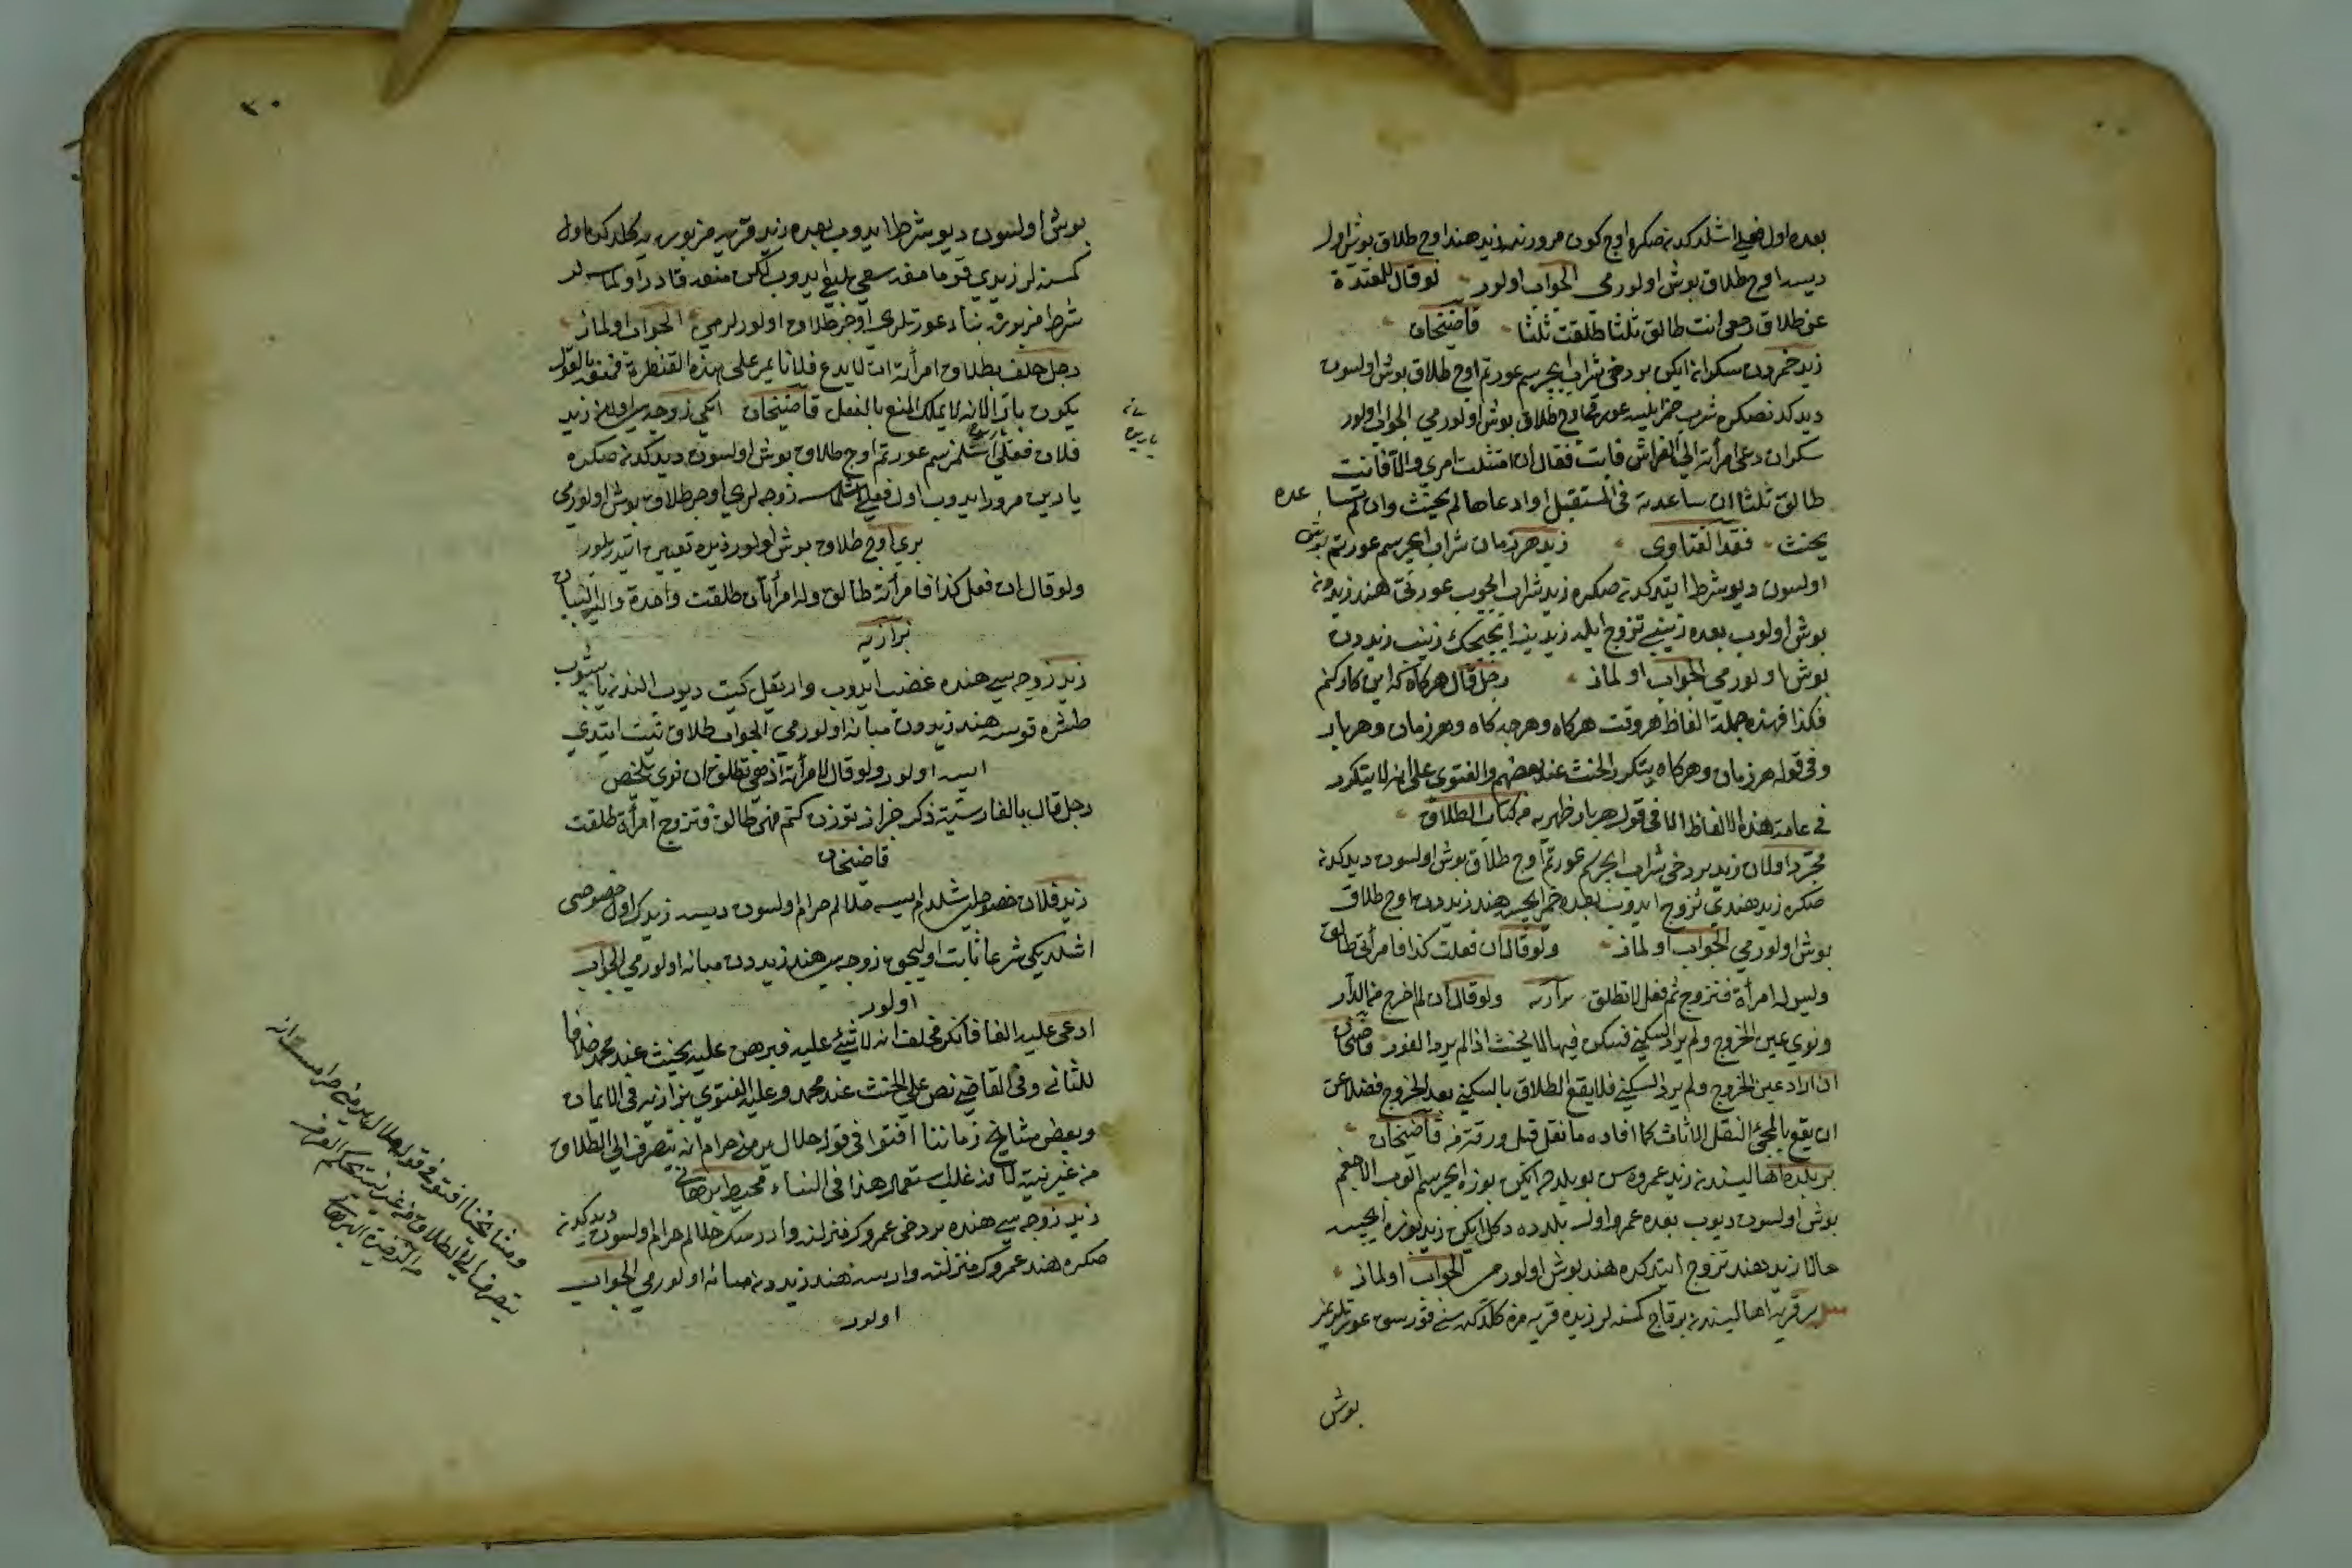 بعده اول فعلى اشلدكدن صكره اوج كون مرورنده زيد هندا اوج طلاق بوش اول
ديسه اوج طلاق بوش اولورمى الجواب اولور لو قال للمعتدة
عن طلاق رجعى انت طالق ثلثا طلقت ثلثا قاضيخان
زيد خمردن سكران ايكن بر دخى شراب ايجرسم عورتم اوج طلاق بوش اولسون
ديدكدنصكره شرب خمر ايلسه عورتى اوج طلاق بوش اولورمى الجواب اولور
سكران دعى امرأته الى الفراش فابت فقال ان امتثلت امرى والا فانت
طالق ثلثا ان ساعدته فى المستقبل اوادعاها لم يحنث وان لم تساعده
يحنث نقد الفتاوى زيد هر زمان شراب ايجرسم عورتم بوش
اولسون ديو شرط ايتدكدنصكره زيد شراب ايجوب عورتى هند زيددن
بوش اولوب بعده زينبى تزوج ايلسه زيد ينه ايجيجك زينب زيددن
بوش اولورمى الجواب اولماز رجل قال هركاه كه اين كار كنم
فكذا فهذه جملة الفاظ هروقت هركاه وهرجه كاه وهرزمان وهربار
وفى قوله هرزمان وهركاه يتكرر الحنث عند بعضهم والفتوى على انه لا يتكرر
فى عامة هذه الالفاظ الا فى قوله هربار ظهيريه من كتاب الطلاق
مجرد اولان زيد بر دخى شراب ايجرسم عورتم اوج طلاق بوش اولسون ديدكدن
صكره زيد هندى تزوج ايدوب بعده خمر ايجسه هند زيددن اوج طلاق
بوش اولورمى الجواب اولماز ولو قال ان فعلت كذا فامرأتى طالق
وليس له امرأة فتزوج ثم فعل لا تطلق بزازيه ولو قال ان لم اخرج من الدار
ونوى عين الخروج ولم يرد السكنى فسكن فيها لا يحنث اذا لم يرد الفور قاضيخان
ان اراد عين الخروج ولم يرد السكنى فلا يقع الطلاق بالسكنى بعد الخروج فضلا عن
ان يقع بالمجئ لنقل الاثاث كما افاده ما نقل قبل ورقة من قاضيخان
بر بلده اهاليسندن زيد عمرو بو بلده ايكن بوزه ايجرسم الوب الاجغم
بوش اولسون ديوب بعده عمرو اول بلده دكل ايكن زيد بوزه ايجسه
حالا زيد هند تزوج ايتدكده هند بوش اولورمى الجواب اولماز
بر قريه اهاليسندن برقاج كمسنه لر زيده قريه مزه كلدكده سنى قورسق عورتلريمز
بوش
٣٠
بوش اولسون ديو شرط ايدوب بعده زيد قريه مزبوره يه كلدكده اول
كمسنه لر زيدى قوماغه سعى بليغ ايدوب لكن منعه قادر اولماسه لر
شرط مزبوره بناء عورتلرى اوجر طلاق اولورلرمى الجواب اولماز
رجل حلف بطلاق امرأته ان لا يدع فلانا يمر على هذه القنطرة فمنعه بالقول
يكون بارا لانه لا يملك المنع بالفعل قاضيخان ايكى زوجه سى اولان زيد
فلان فعلى اشلمزسم عورتم اوج طلاق بوش اولسون ديدكدنصكره
ياريسى مرور ايدوب اول فعلى اشلمسه زوجه لرى اوجر طلاق بوش اولورمى
برى اوج طلاق بوش اولور زيده تعيين ايتديريلور
ولو قال ان فعل كذا فامرأته طالق وله امرأتان طلقت واحدة واليه البيان
بزازيه
زيد زوجه سى هنده غضب ايدوب وار يقل كيت ديوب الندن يابشوب
طشره قوسه هند زيددن مبانه اولورمى الجواب طلاق نيت ايتدى
ايسه اولور ولو قال لامرأته اذهبى تطلق ان نوى
رجل قال بالفارسية ذكر جز از تو زن كنم فهى طالق فتزوج امرأة طلقت
قاضيخان
زيد فلان خصوصى اشلدم ايسه حلالم حرام اولسون ديسه زيدك اول خصوصى
اشلديكى شرعا ثابت اوليجق زوجه سى هند زيددن مبانه اولورمى الجواب
اولور
ادعى عليه الفا فانكر فحلف انه لا شئ عليه فبرهن عليه يحنث عند محمد خلافا
للثانى وفى القاضى نص على الحنث عند محمد وعليه الفتوى بزازيه فى الايمان
وبعض مشايخ زماننا افتوا فى قوله حلال بر من حرام انه يتصرف الى الطلاق
من غير نية لما قد غلب استعمال هذا فى النساء محيط برهانى
زيد زوجه سى هنده بر دخى عمروك منزلنه واررسك حلالم حرام اولسون ديدكدن
صكره هند عمروك منزلنه وارسه هند زيددن مبانه اولورمى الجواب
اولور
ومشايخنا افتوا فى قوله حلال بر من حرام است انه
يتصرف الى الطلاق من غير نية بحكم العرف
من الذخيرة البرهانى